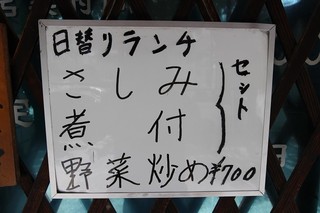 日替リランチ
さしみ
煮付
野菜炒め ¥700
セット